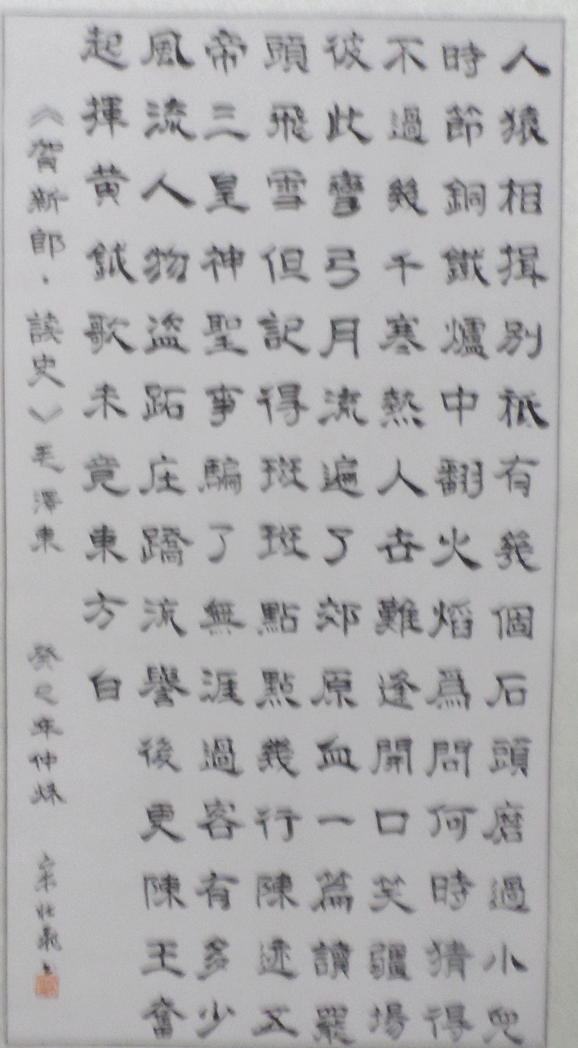 人猿相揖別祗有幾個石頭磨過小兒
時節銅鐵爐中翻火焰爲問何時猜得
不過幾千寒熱人世難逢開口笑疆場
彼此彎弓月流遍了郊原血一篇讀罷
頭飛雪但記得斑斑點點幾行陳迹五
帝三皇神聖事騙了無涯過客有多少
風流人物盜跖庄蹻流譽後更陳王奮
起揮黄鉞歌未竟東方白
《賀新郎·讀史》毛澤東 癸巳年仲秌